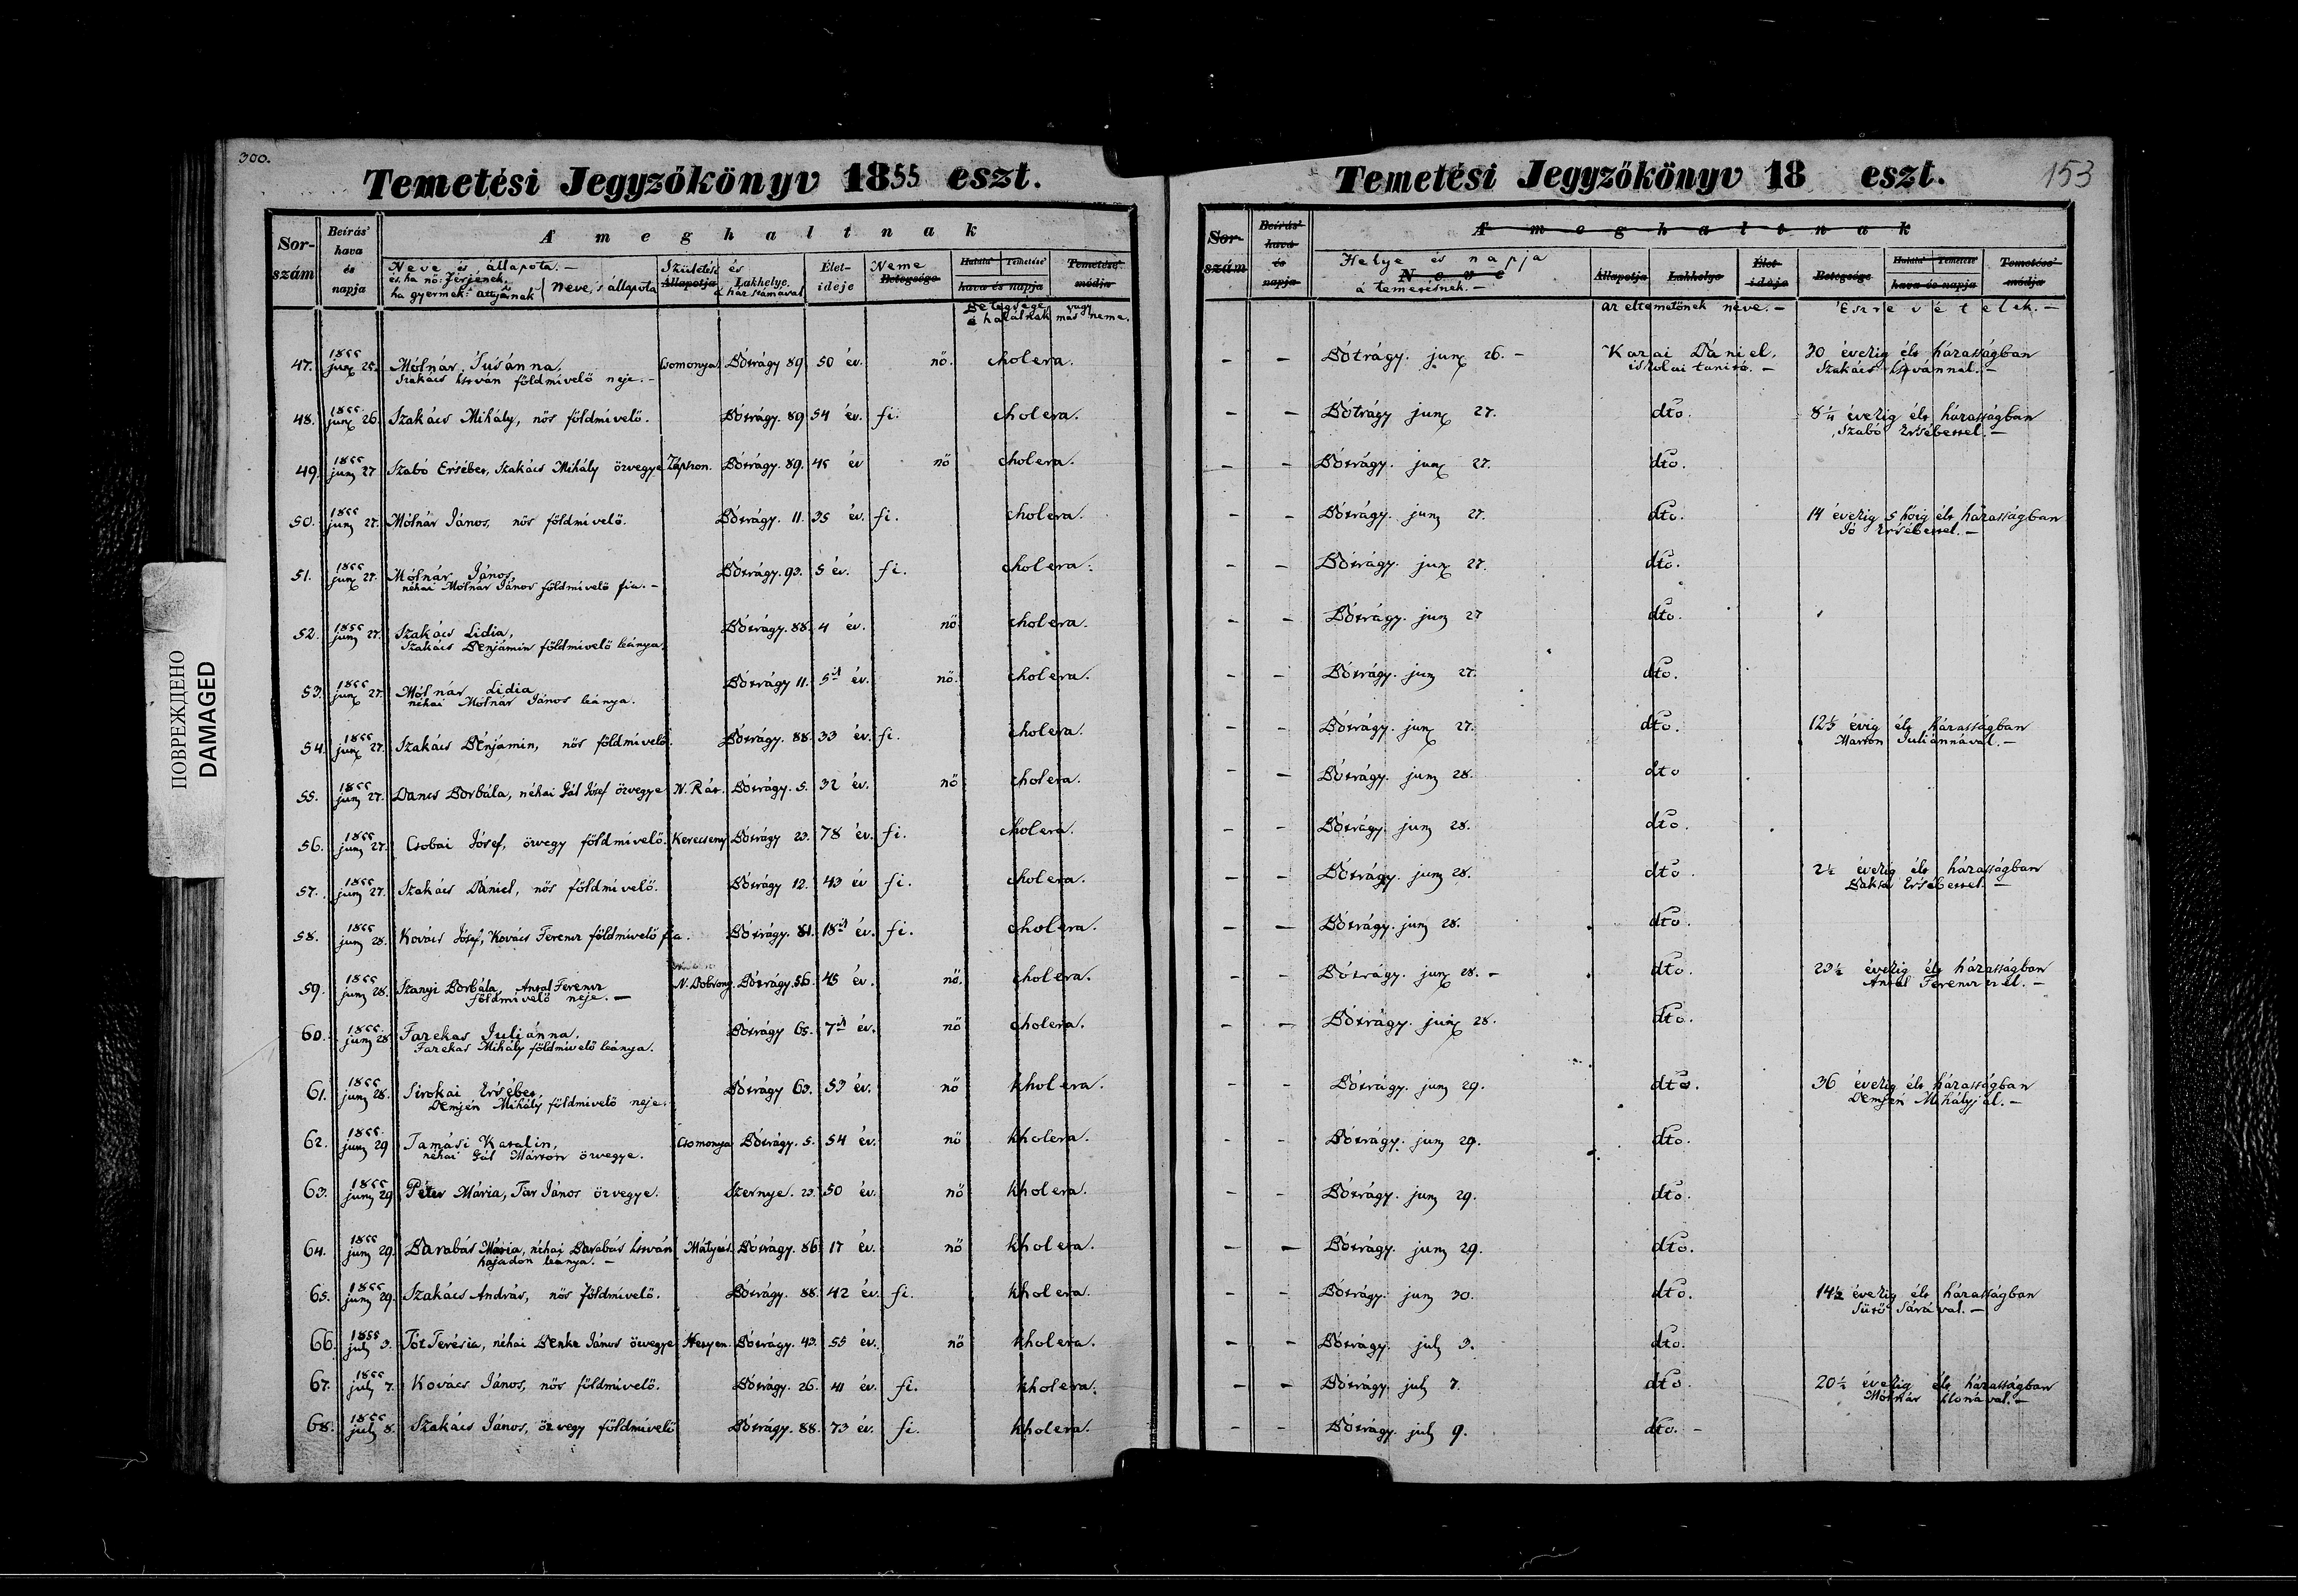 300.
Temetési Jegyzőkönyv 1855 eszt.
Sor-
szám
Beírás'
hava
és
napja
A' meghaltnak
Neve és állapota.—
és, ha nő: férjének,
ha gyermek: attyának
neve, 's állapota
Születési és
Állapotja Lakhelye
a' ház számával
Élet-
ideje
Neme
Betegsége
Halála' Temetése'
hava és napja
Temetésé'
módja
Betegsége vagy
a' halálnak más neme.
47. 1855 jun 25. Mólnár Susánna, Csomonya Bótrágy 89 50 év. nő. cholera.
Szakács István földmívelő neje.—
48. 1855 jun 26. Szakács Mihály, nős földmívelő. Bótrágy. 89 54 év. fi. cholera.
49. 1855 jun 27 Szabó Ersébet, Szakács Mihály özvegye Zápszon. Bótrágy. 89. 45 év nő cholera.
50. 1855 jun 27. Mólnár János, nős földmívelő. Bótrágy. 11. 35 év. fi. cholera.
51. 1855 jun 27. Mólnár János, Bótrágy. 93. 5 év. fi. cholera.
néhai Mólnár János földmívelő fia.—
52. 1855 jun 27. Szakács Lidia, Bótrágy. 88. 4 év. nő cholera.
Szakács Benjámin földmívelő leánya.
53. 1855 jun 27. Mólnár Lidia, Bótrágy 11. 5 év. nő. cholera.
néhai Mólnár János leánya.
54. 1855 jun 27. Szakács Bénjamin, nős földmívelő. Bótrágy. 88. 33 év. fi. cholera.
55. 1855 jun 27. Dancs Borbála, néhai Gál Jósef özvegye N. Rát. Bótrágy. 5. 32 év. nő cholera.
56. 1855 jun 27. Csobai Jósef, özvegy földmívelő. Kerecseny Bótrágy 23. 78 év. fi. cholera.
57. 1855 jun 27. Szakács Dániel, nős földmívelő. Bótrágy 12. 43 év fi. cholera.
58. 1855 jun 28. Kovács Jósef, Kovács Ferencz földmívelő fia. Bótrágy. 81. 18 év. fi. cholera.
59. 1855 jun 28. Szanyi Borbála, Antal Ferencz N. Dobrony. Bótrágy. 56. 45 év. nő. cholera.
földmívelő neje.—
60. 1855 jun 28. Fazekas Juliánna, Bótrágy 65. 7 év. nő cholera.
Fazekas Mihály földmívelő leánya.
61. 1855 jun 28. Sirokai Ersébet, Bótrágy 63. 53 év. nő kholera.
Demjén Mihály földmívelő neje.
62. 1855 jun 29 Tamási Katalin, Csomonya Bótrágy. 5. 54 év. nő kholera.
néhai Gál Márton özvegye.
63. 1855 jun 29 Péter Mária, Tar János özvegye. Szernye. 23. 50 év. nő kholera.
64. 1855 jun 29. Barabás Mária, néhai Barabás István Mátyus. Bótrágy. 86 17 év. nő kholera.
hajadon leánya.—
65. 1855 jun 29. Szakács András, nős földmívelő. Bótrágy. 88. 42 év. fi. kholera.
66. 1855 jul 3. Tót Terésia, néhai Benke János özvegye Hetyen. Bótrágy. 43. 55 év. nő kholera.
67. 1855 jul 7. Kovács János, nős földmívelő. Bótrágy. 26. 41 év. fi. kholera.
68. 1855 jul 8. Szakács János, özvegy földmívelő Bótrágy. 88. 73 év. fi. kholera.
ПОВРЕЖДЕНО
DAMAGED
Temetési Jegyzőkönyv 18 eszt.
153
Sor-
szám
Beírás'
hava
és
napja
A' meghaltnak
Helye és napja
Neve
a' temetésnek.—
Állapotja
Lakhelye
Élet-
ideje
Betegsége
Halála' Temetése'
hava és napja
Temetésé'
módja
az eltemetőnek neve.—
Észrevételek.—
– – Bótrágy. jun 26.– Kazai Dániel, 30 évekig élt házasságban
iskolai tanító.— Szakács Istvánnal.—
– – Bótrágy jun 27. dto. 8¼ évekig élt házasságban
Szabó Ersébettel.—
– – Bótrágy. jun 27. dto.
– – Bótrágy. jun 27. dto. 14 évekig 5 hóig élt házasságban
Jó Ersébettel.—
– – Bótrágy. jun 27. dto.
– – Bótrágy. jun 27 dto.
– – Bótrágy. jun 27. dto.
– – Bótrágy. jun 27. dto. évig élt házasságban
Marton Juliánnával.—
– – Bótrágy. jun 28. dto
– – Bótrágy. jun 28. dto.
– – Bótrágy. jun 28. dto 2½ évekig élt házasságban
Baksa Ersébettel.—
– – Bótrágy. jun 28. dto.
– – Bótrágy. jun 28.– dto. 23½ évekig élt házasságban
Antal Ferenczczel.—
– – Bótrágy. jun 28. dto.
– – Bótrágy. jun 29. dto. 36 évekig élt házasságban
Demjén Mihályjal.—
– – Bótrágy. jun 29. dto.
– – Bótrágy. jun 29. dto.
– – Bótrágy. jun 29. dto.
– – Bótrágy. jun 30. dto. 14½ évekig élt házasságban
Sütő Sárával.—
– – Bótrágy. jul 3. dto.
– – Bótrágy. jul 7. dto. 20½ évekig élt házasságban
Mólnár Ilonával.—
– – Bótrágy. jul 9. dto.–